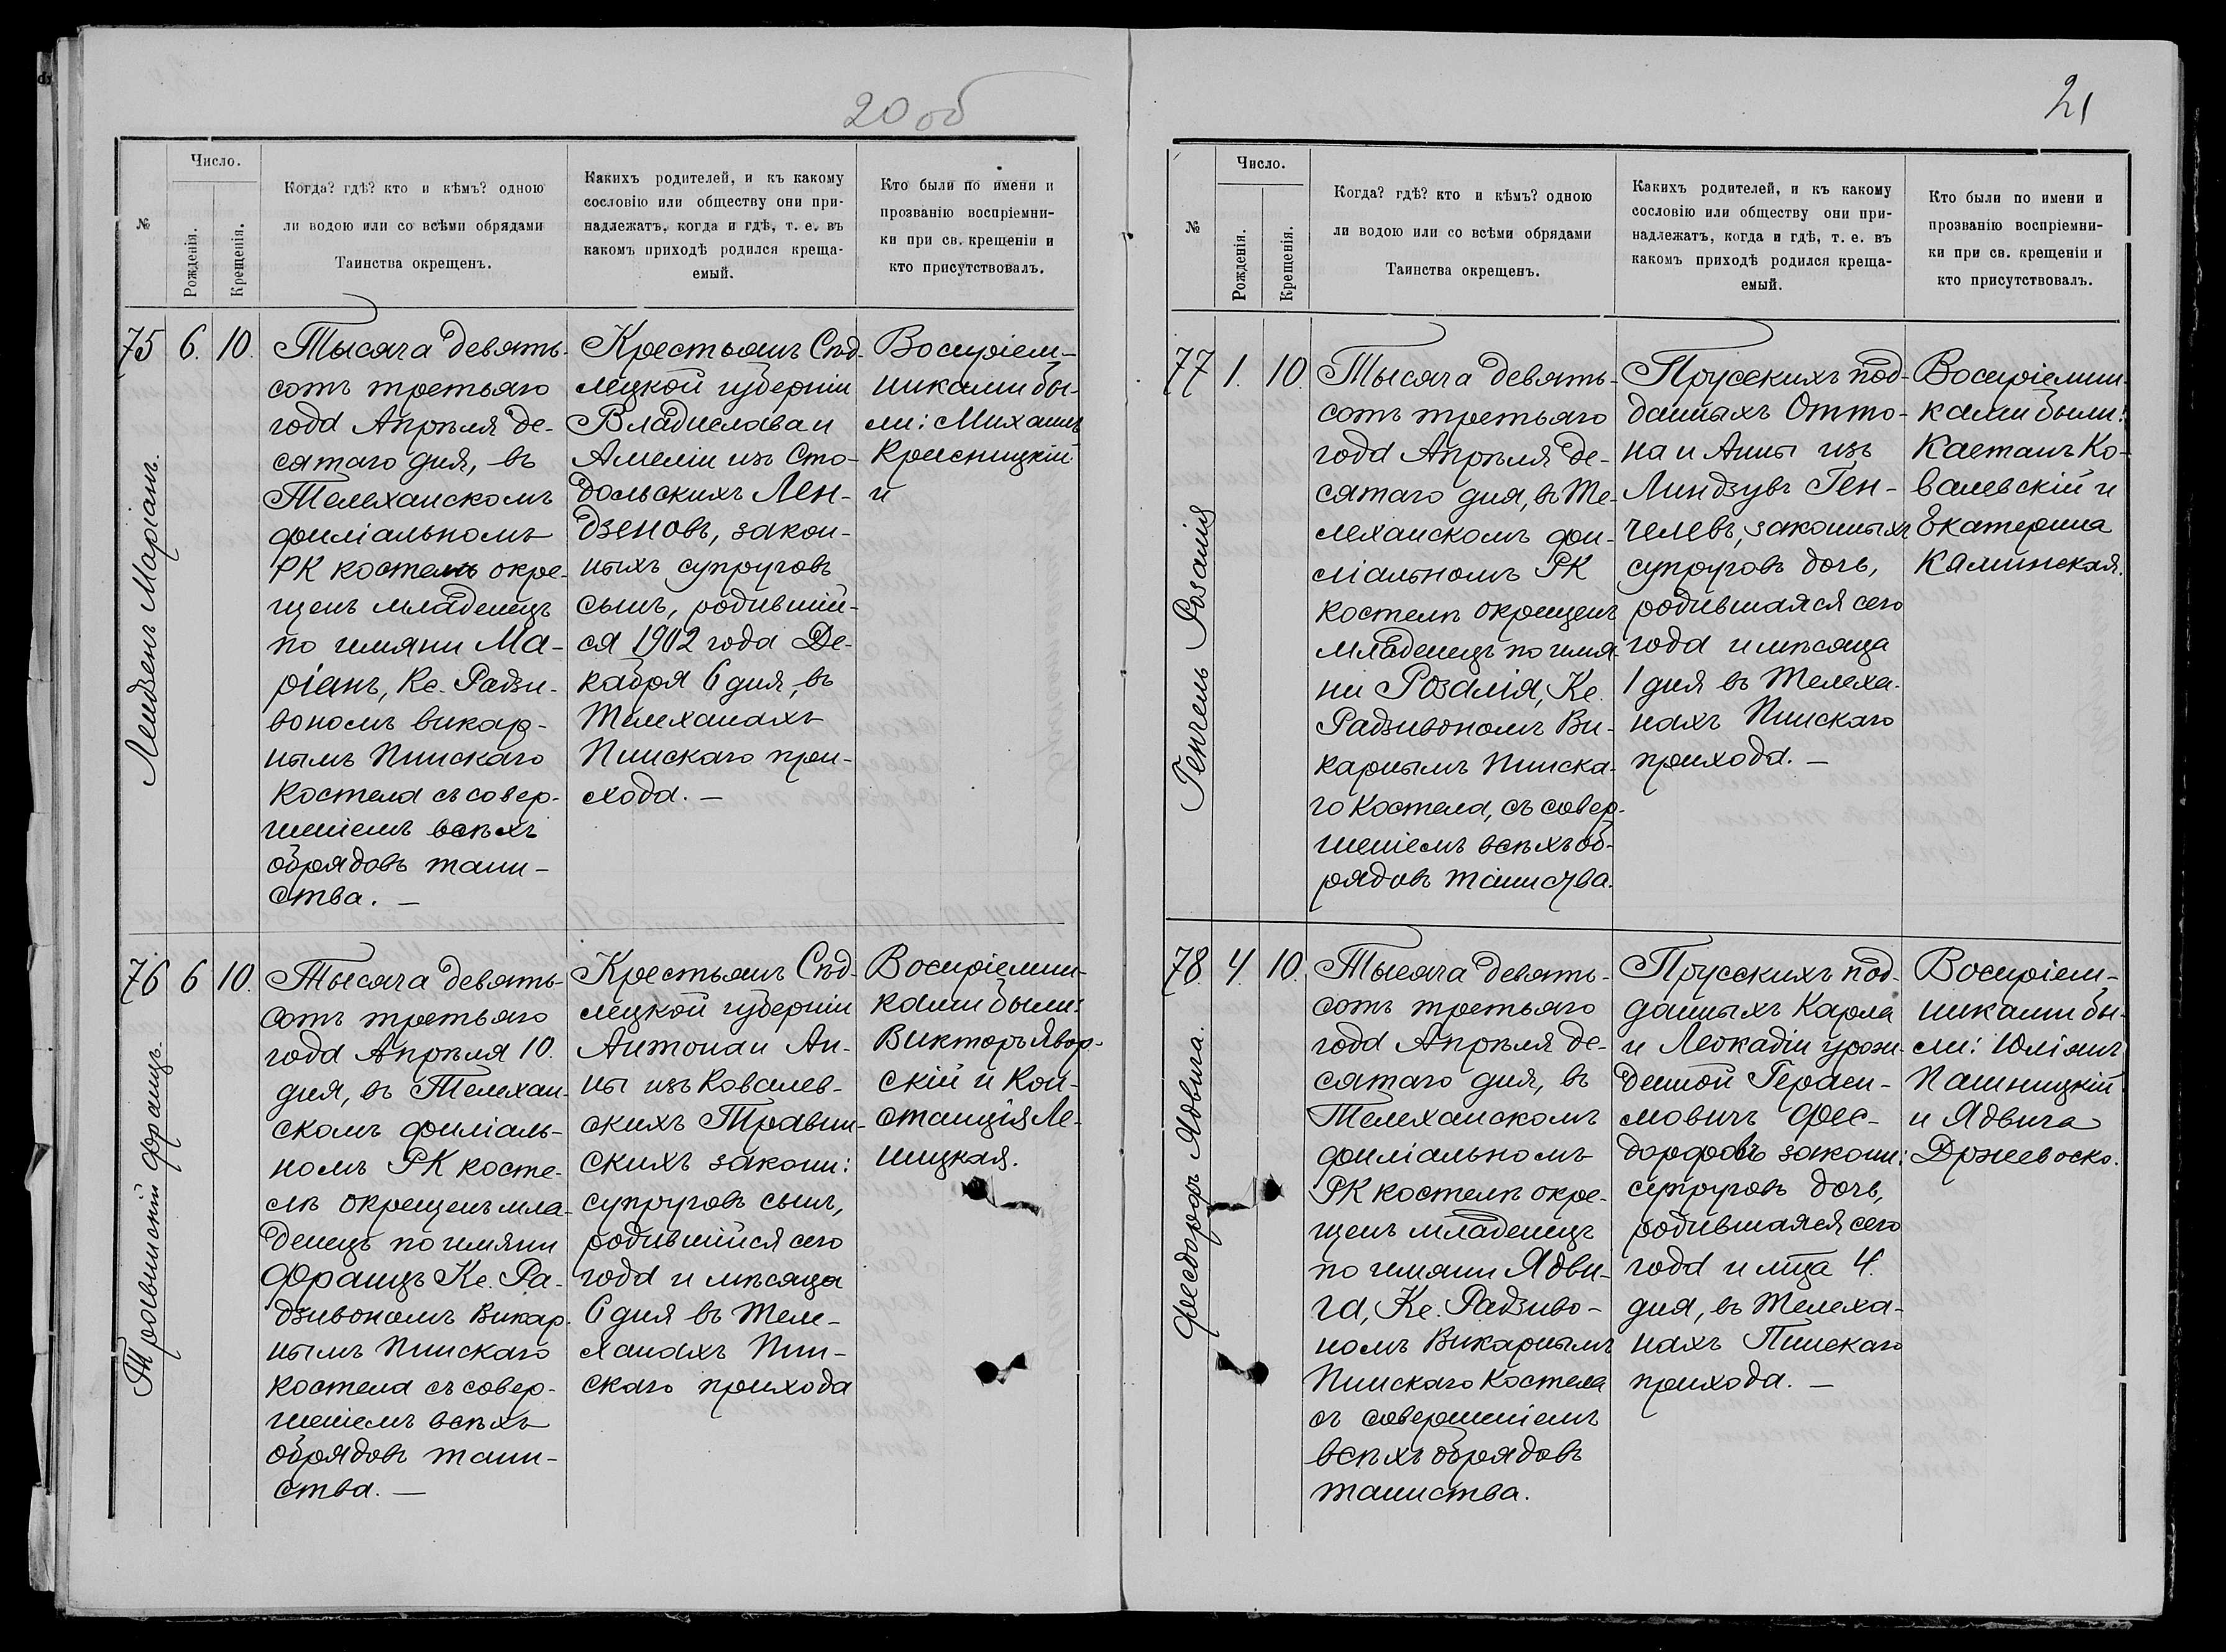 20 об
№
Число.
Рожденія.
Крещенія.
Когда? гдѣ? кто и кѣмъ? одною
ли водою или со всѣми обрядами
Таинства окрещенъ.
Какихъ родителей, и къ какому
сословію или обществу они при-
надлежатъ, когда и гдѣ, т. е. въ
какомъ приходѣ родился креща-
емый.
Кто были по имени и
прозванію воспріемни-
ки при св. крещеніи и
кто присутствовалъ.
75
Лендзенъ Маріанъ.
6.
10.
Тысяча девять-
сотъ третьяго
года Апрѣля де-
сятаго дня, въ
Телеханскомъ
филіальномъ
РК костелѣ окре-
щенъ младенецъ
по имяни Ма-
ріанъ, Кс. Радзи-
вономъ викар-
нымъ Пинскаго
Костела съ совер-
шеніемъ всѣхъ
обрядовъ таин-
ства. —
Крестьянъ Сѣд-
лецкой губерніи
Владислава и
Амеліи изъ Сто-
дольскихъ Лен-
дзеновъ, закон-
ныхъ супруговъ
сынъ, родившій-
ся 1902 года Де-
кабря 6 дня, въ
Телеханахъ
Пинскаго при-
хода. —
Воспріем-
никами бы-
ли: Михаилъ
Крисницкій
и
76
Травинскій Францъ.
6
10.
Тысяча девять-
сотъ третьяго
года Апрѣля 10.
дня, въ Телехан-
скомъ филіаль-
номъ РК косте-
лѣ окрещенъ мла-
денецъ по имяни
Францъ Кс. Ра-
дзивономъ Викар-
нымъ Пинскаго
костела съ совер-
шеніемъ всѣхъ
обрядовъ таин-
ства. —
Крестьянъ Сѣд-
лецкой губерніи
Антона и Ан-
ны изъ Ковалев-
скихъ Травин-
скихъ законн:
супруговъ сынъ,
родившійся сего
года и мѣсяца
6 дня въ Теле-
ханахъ Пин-
скаго прихода
Воспріемни-
ками были:
Викторъ Явор-
скій и Кон-
станція Ле-
ницкая.
21
№
Число.
Рожденія.
Крещенія.
Когда? гдѣ? кто и кѣмъ? одною
ли водою или со всѣми обрядами
Таинства окрещенъ.
Какихъ родителей, и къ какому
сословію или обществу они при-
надлежатъ, когда и гдѣ, т. е. въ
какомъ приходѣ родился креща-
емый.
Кто были по имени и
прозванію воспріемни-
ки при св. крещеніи и
кто присутствовалъ.
77
Генчель Розалія
1.
10.
Тысяча девять-
сотъ третьяго
года Апрѣля де-
сятаго дня, въ Те-
леханскомъ фи-
ліальномъ РК
костелѣ окрещенъ
младенецъ по имя-
ни Розалія, Кс.
Радзивономъ Ви-
карнымъ Пинска-
го Костела, съ совер-
шеніемъ всѣхъ об-
рядовъ таинства.
Прусскихъ под-
данныхъ Отто-
на и Анны изъ
Линдзувъ Ген-
челевъ, законныхъ
супруговъ дочь,
родившаяся сего
года и мѣсяца
1 дня въ Телеха-
нахъ Пинскаго
прихода. —
Воспріемни-
ками были:
Каетанъ Ко-
валевскій и
Екатерина
Калинская.
78
Фесдорфъ Ядвига.
4.
10.
Тысяча девять-
сотъ третьяго
года Апрѣля де-
сятаго дня, въ
Телеханскомъ
филіальномъ
РК костелѣ окре-
щенъ младенецъ
по имяни Ядви-
га, Кс. Радзиво-
номъ Викарнымъ
Пинскаго Костела
съ совершеніемъ
всѣхъ обрядовъ
таинства.
Прусскихъ под-
данныхъ Карла
и Леокадіи урож-
денной Гераси-
мовичъ Фес-
дорфовъ законн:
супруговъ дочь,
родившаяся сего
года и мца 4.
дня, въ Телеха-
нахъ Пинскаго
прихода. —
Воспріем-
никами бы-
ли: Юліанъ
Пашницкій
и Ядвига